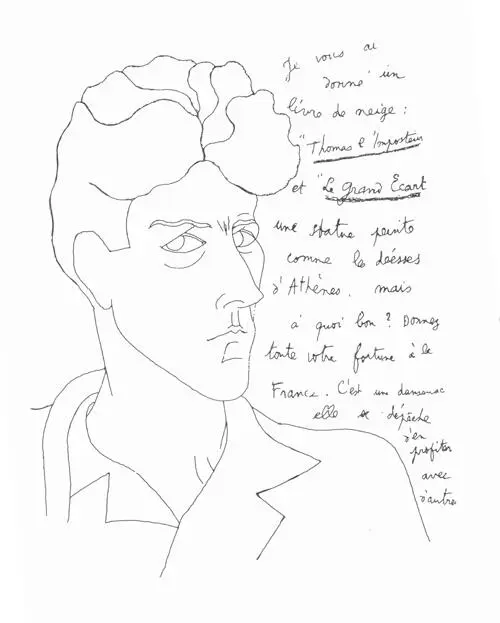 Je vous ai
donné un
livre de neige :
"Thomas l'Imposteur
et "Le Grand Ecart
une statue peinte
comme les déesses
d'Athènes. mais
à quoi bon ? Donnez
toute votre fortune à la
France. C'est une danseuse
elle se dépêche
d'en
profiter
avec
d'autres